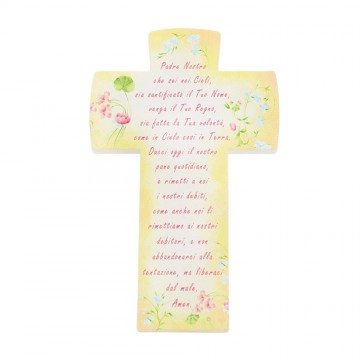 Padre Nostro
che sei nei Cieli,
sia santificato il Tuo Nome,
venga il Tuo Regno,
sia fatta la Tua volontà,
come in Cielo così in Terra.
Dacci oggi il nostro
pane quotidiano,
e rimetti a noi
i nostri debiti,
come anche noi li
rimettiamo ai nostri
debitori, e non
abbandonarci alla
tentazione, ma liberaci
dal male.
Amen.